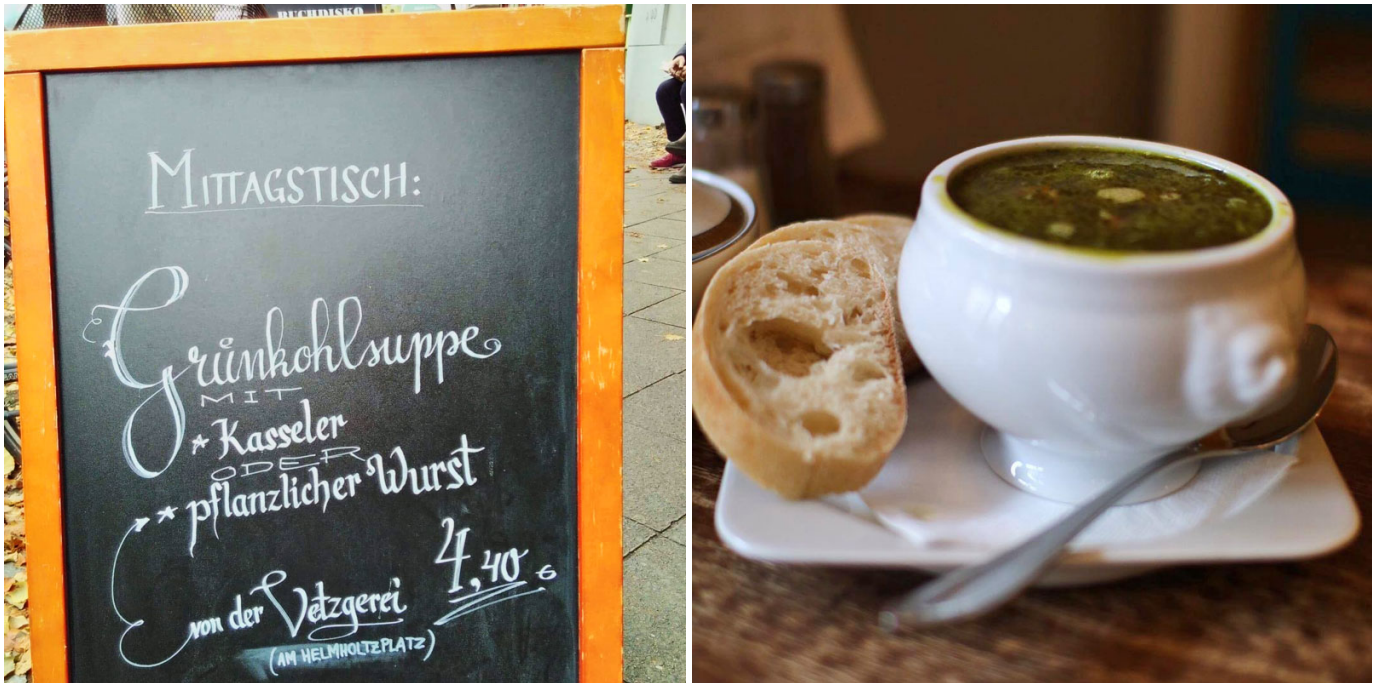 BUCHDISKO
MITTAGSTISCH:
Grünkohlsuppe
MIT
* Kasseler
ODER
* pflanzlicher Wurst
4,40 €
von der Vetzgerei
(AM HELMHOLTZPLATZ)